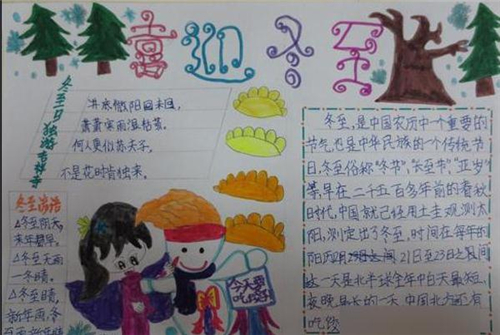 喜迎冬至
冬至日独游吉祥寺
井底微阳回未回,
萧萧寒雨湿枯荄。
何人更似苏夫子,
不是花时肯独来。
冬至谚语
△冬至雨天,
来年
△冬至天雨
一冬晴。
△冬至晴,
新年雨,冬
今天要
吃饺子
冬至,是中国农历中一个重要的
节气,也是中华民族的一个传统节
日,冬至俗称"冬节"、"长至节"、"亚岁"
等,早在二千五百多年前的春秋
时代,中国就已经用土圭观测太
阳,测定出了冬至,时间在每年的
阳历 21日至23日之间
这一天是北半球全年中白天最短、
夜晚最长的一天 中国北方 有
吃饺